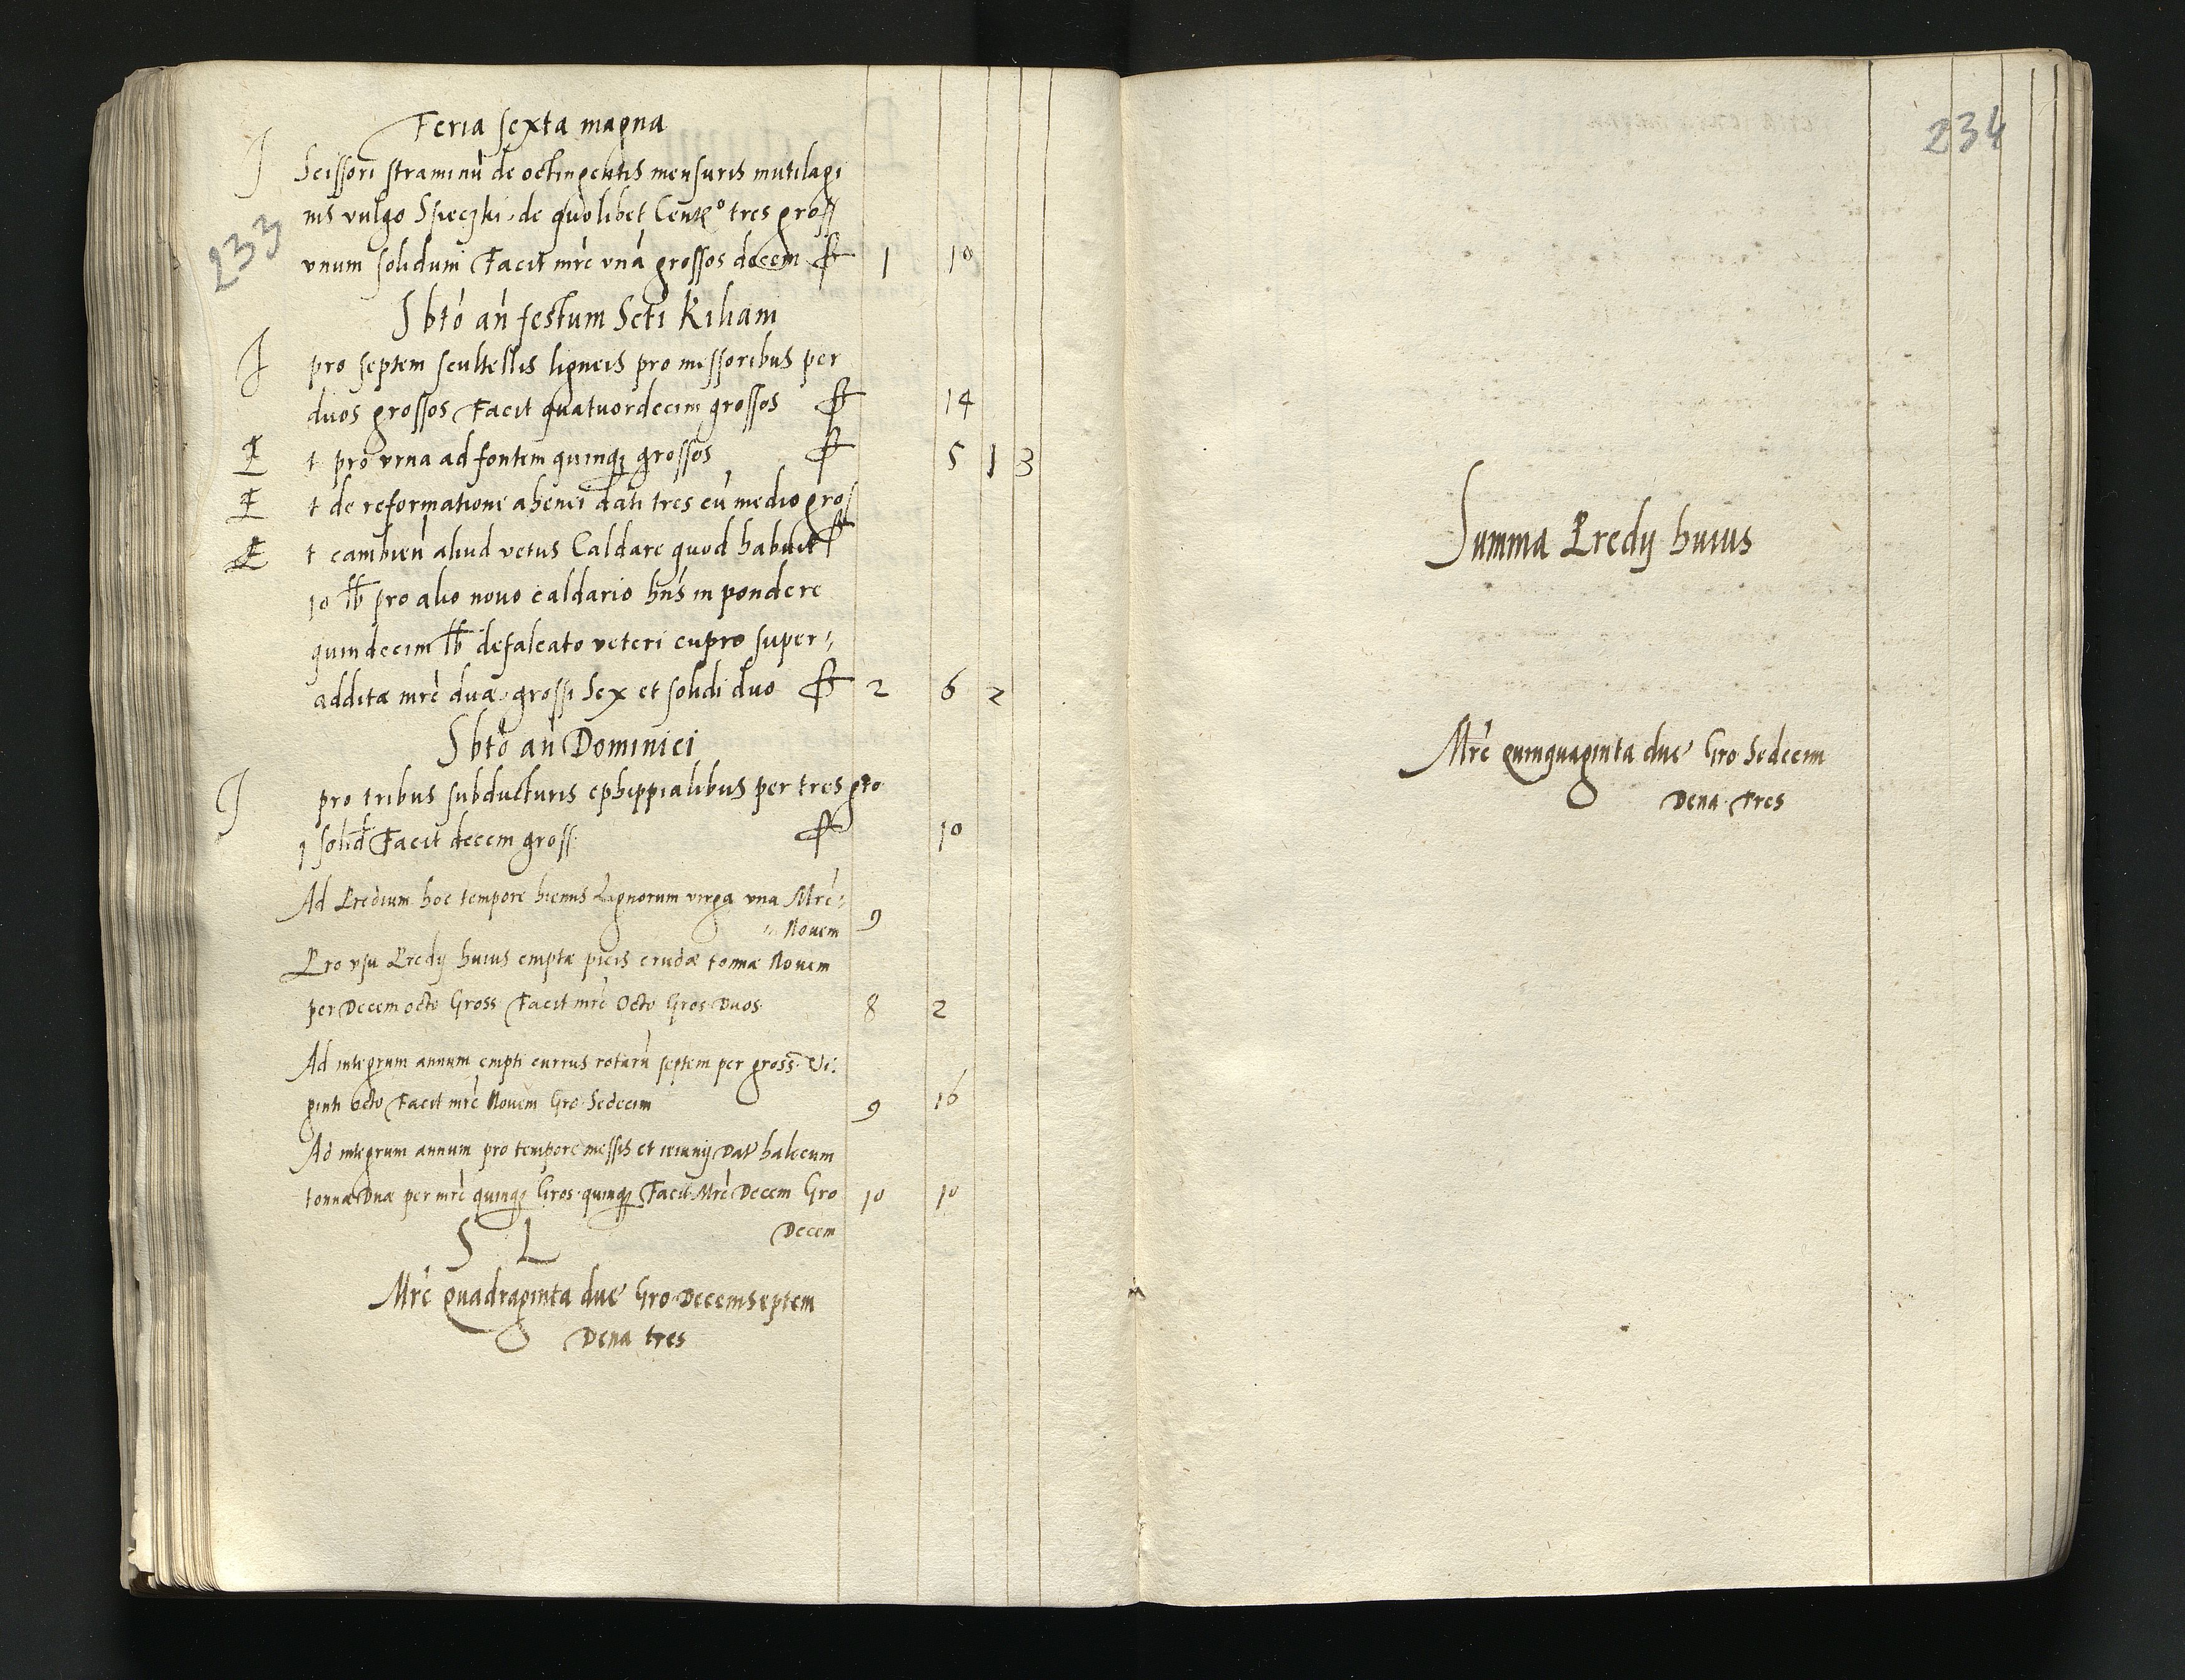 Feria sexta magna
J Scissori straminu de octingentis mensuris mutilagi
233
nis vulgo Speczki de quolibet Cent° tres gross
vnum solidum Facit mrc vna grossos decem ft 1 10
Sbto an festum Scti Kiliani
J pro septem scultellis ligneis pro missoribus per
duos grossos Facit quatuordecim grossos ft 14
t pro vrna ad fontem quinq grossos ft 5 1 3
t de reformatione ahenei dati tres cu medio gros
t cambien aliud vetus Caldare quod habuit ft
10 lb pro alio nouo caldario hns in pondere
quindecim lb defalcato veteri cupro super
additæ mrc duæ grossi Sex et solidi duo ft 2 6 2
Sbto an Dominici
J pro tribus subducturis ephippialibus per tres gro
1 solid Facit decem gross ft 10
Ad Predium hoc tempore hiemis Lignorum virga vna Mrc
Nouem 9
Pro vsu Predij huius emptæ picis crudæ tonnæ Nouem
per Decem octo Gross Facit mrc Octo Gros Duos 8 2
Ad integrum annum empti currus rotaru septem per gross Vi:
ginti octo Facit mrc Nouem Gro Sedecim 9 16
Ad integrum annum pro tempore messis et ieiunij Dat halecum
tonnæ Duæ per mrc quinq Gros quinq Facit Mrc Decem Gro 10 10
Decem
S L
Mrc Quadraginta due Gro Decemseptem
Dena tres
234
Summa Predij huius
Mrc Quinquaginta due Gro Sedecim
Dena Tres